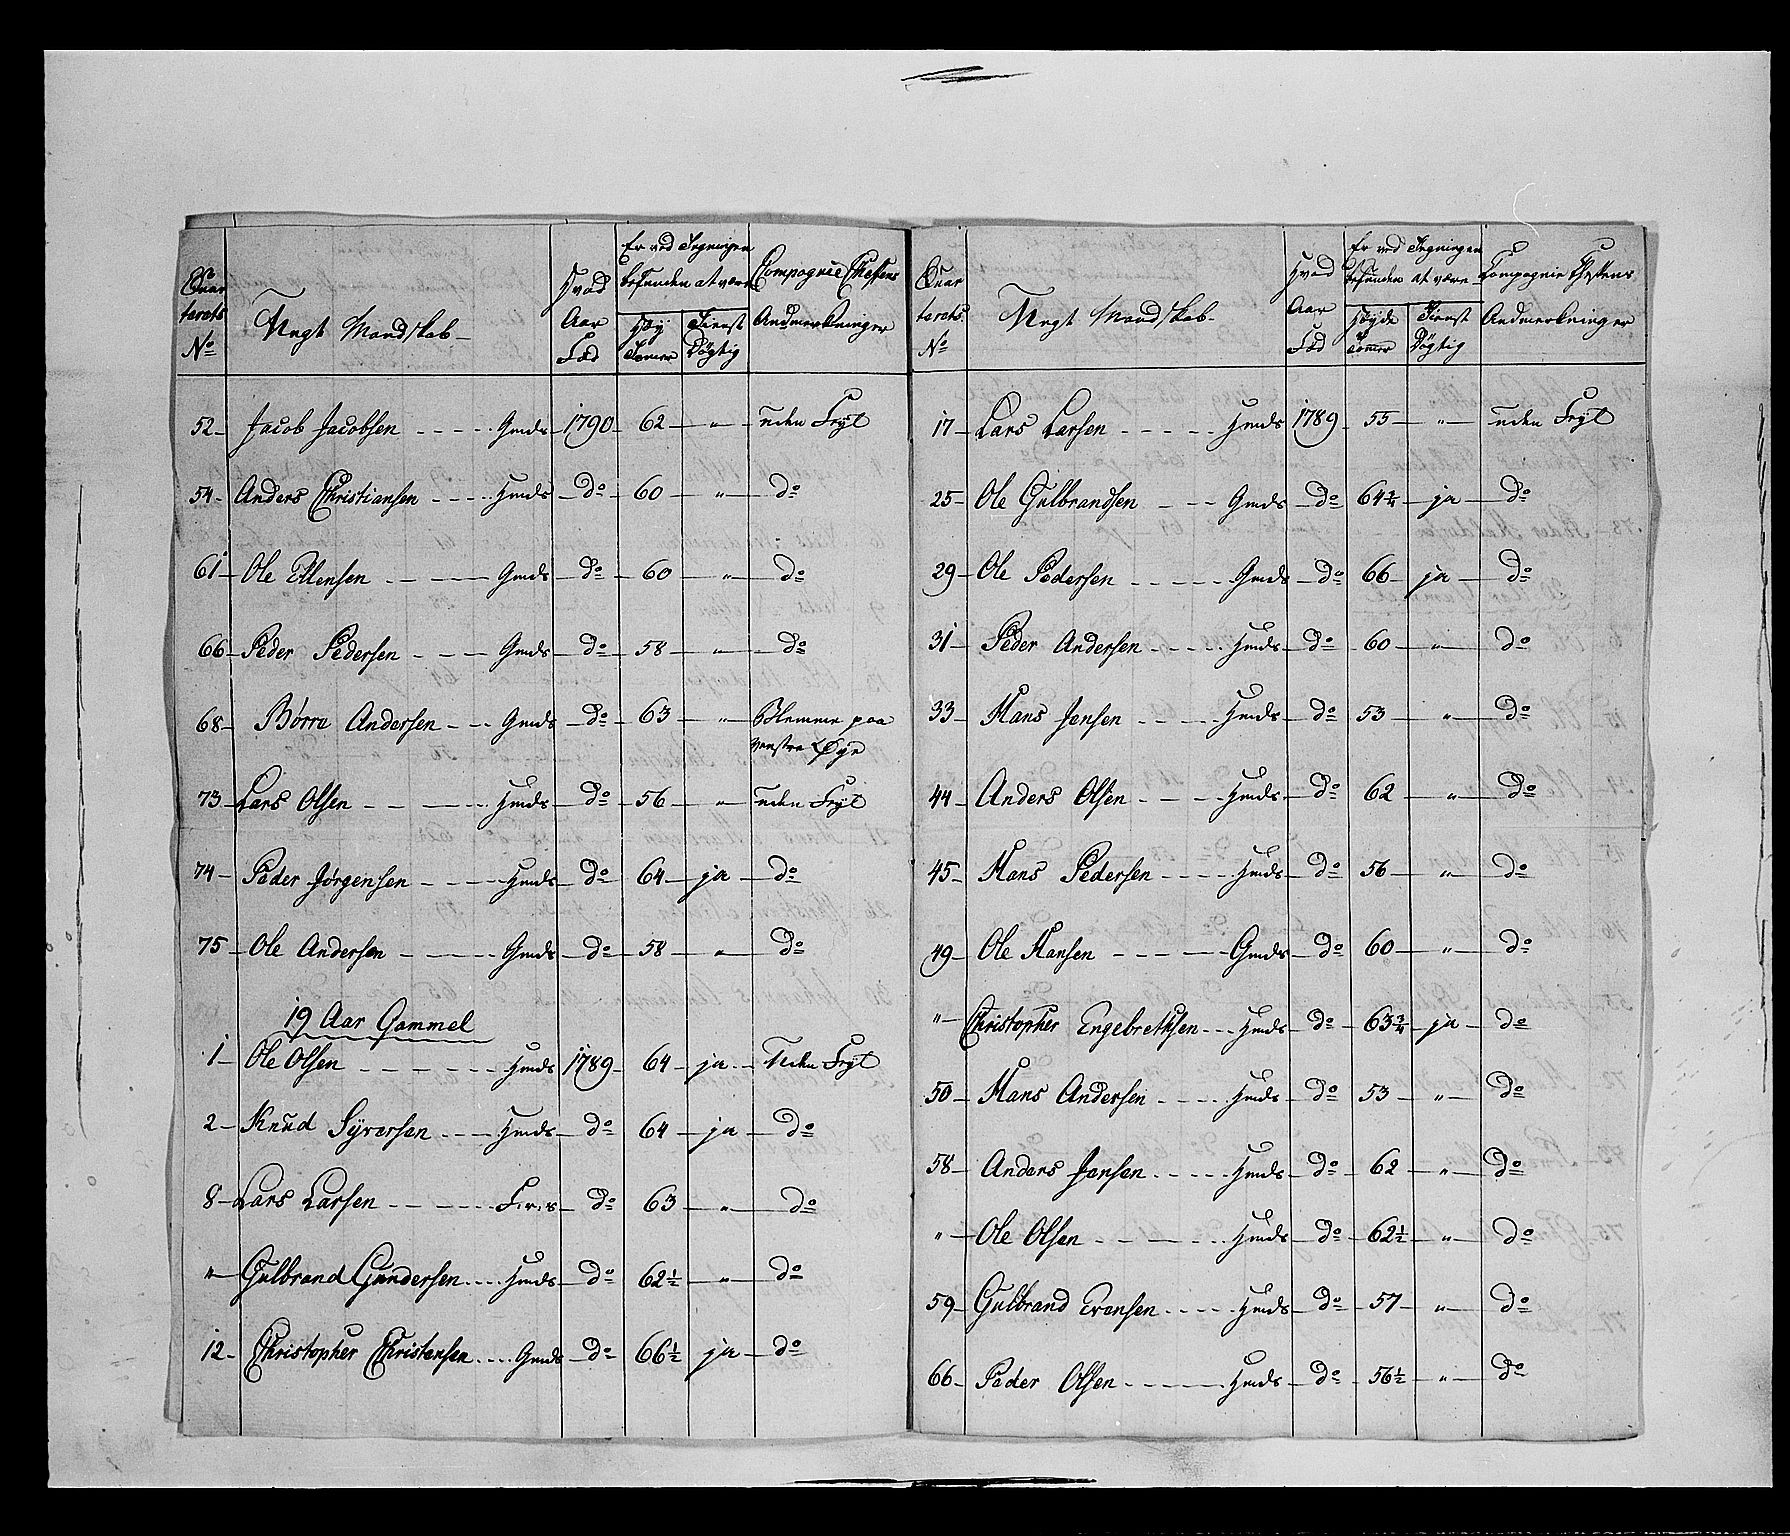 Qvar
terets
No
Ungt Mandskab
Hvad
Aar
Fød
Er ved Tegningen
befunden at være
Høy
Tomer
Tienst
Dögtig
Compagnie Cheffens
Andmerkninger
52 Jacob Jacobsen Gmds 1790 62 " uden Feyl
54 Anders Christiansen Hmds do 60 " do
61 Ole Ellensen Gmds do 60 " do
66 Peder Pedersen Gmds do 58 " do
68 Börre Andersen Gmds do 63 " Blemme paa
venstre Øye
73 Lars Olsen Hmds do 56 " uden Feyl
74 Peder Jörgensen Hmds do 64 ja do
75 Ole Andersen Gmds do 58 " do
19 Aar Gammel
1 Ole Olsen Hmds 1789 64 ja Uden Feyl
2 Knud Syversen Hmds do 64 ja do
8 Lars Larsen do 63 " do
" Gulbrand Gundersen Hmds do 62½ " do
12 Christopher Christensen Gmds do 66½ ja do
Qvar
terets
No
Ungt Mandskab
Hvad
Aar
Fød
Er ved Tegningen
befunden at være
Høyde
Tomer
Tienst
Dögtig
Compagnie Cheffens
Andmerkninger
17 Lars Larsen Hmds 1789 55 " uden Feyl
25 Ole Gulbrandsen Gmds do 64¾ ja do
29 Ole Pedersen Gmds do 66 ja do
31 Peder Andersen Hmds do 60 " do
33 Hans Jensen Hmds do 53 " do
44 Anders Olsen Hmds do 62 " do
45 Hans Pedersen Hmds do 56 " do
49 Ole Hansen Gmds do 60 " do
" Christopher Engebrethsen Hmds do 63¾ ja do
50 Hans Andersen Hmds do 53 " do
58 Anders Jensen Hmds do 62 " do
" Ole Olsen Hmds do 62½ " do
59 Gulbrand Evensen Hmds do 57 " do
66 Peder Olsen Hmds do 56½ " do